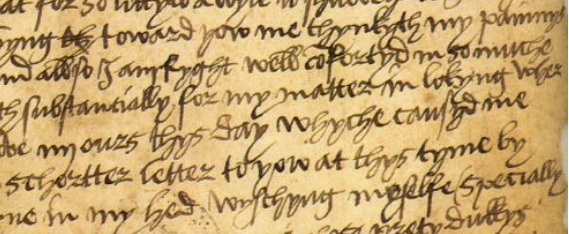 for so littyll a wyle it shulde
yng toward yow me thynkyth my painnys
nd allso I am ryght well cofortyd in so muche
th substancially for my matter in lokyng wher
ours thys day whyche causyd me
schortter letter to yow at thys tyme by
ne in my hed wyschyng my selfe specially
prety dukkys